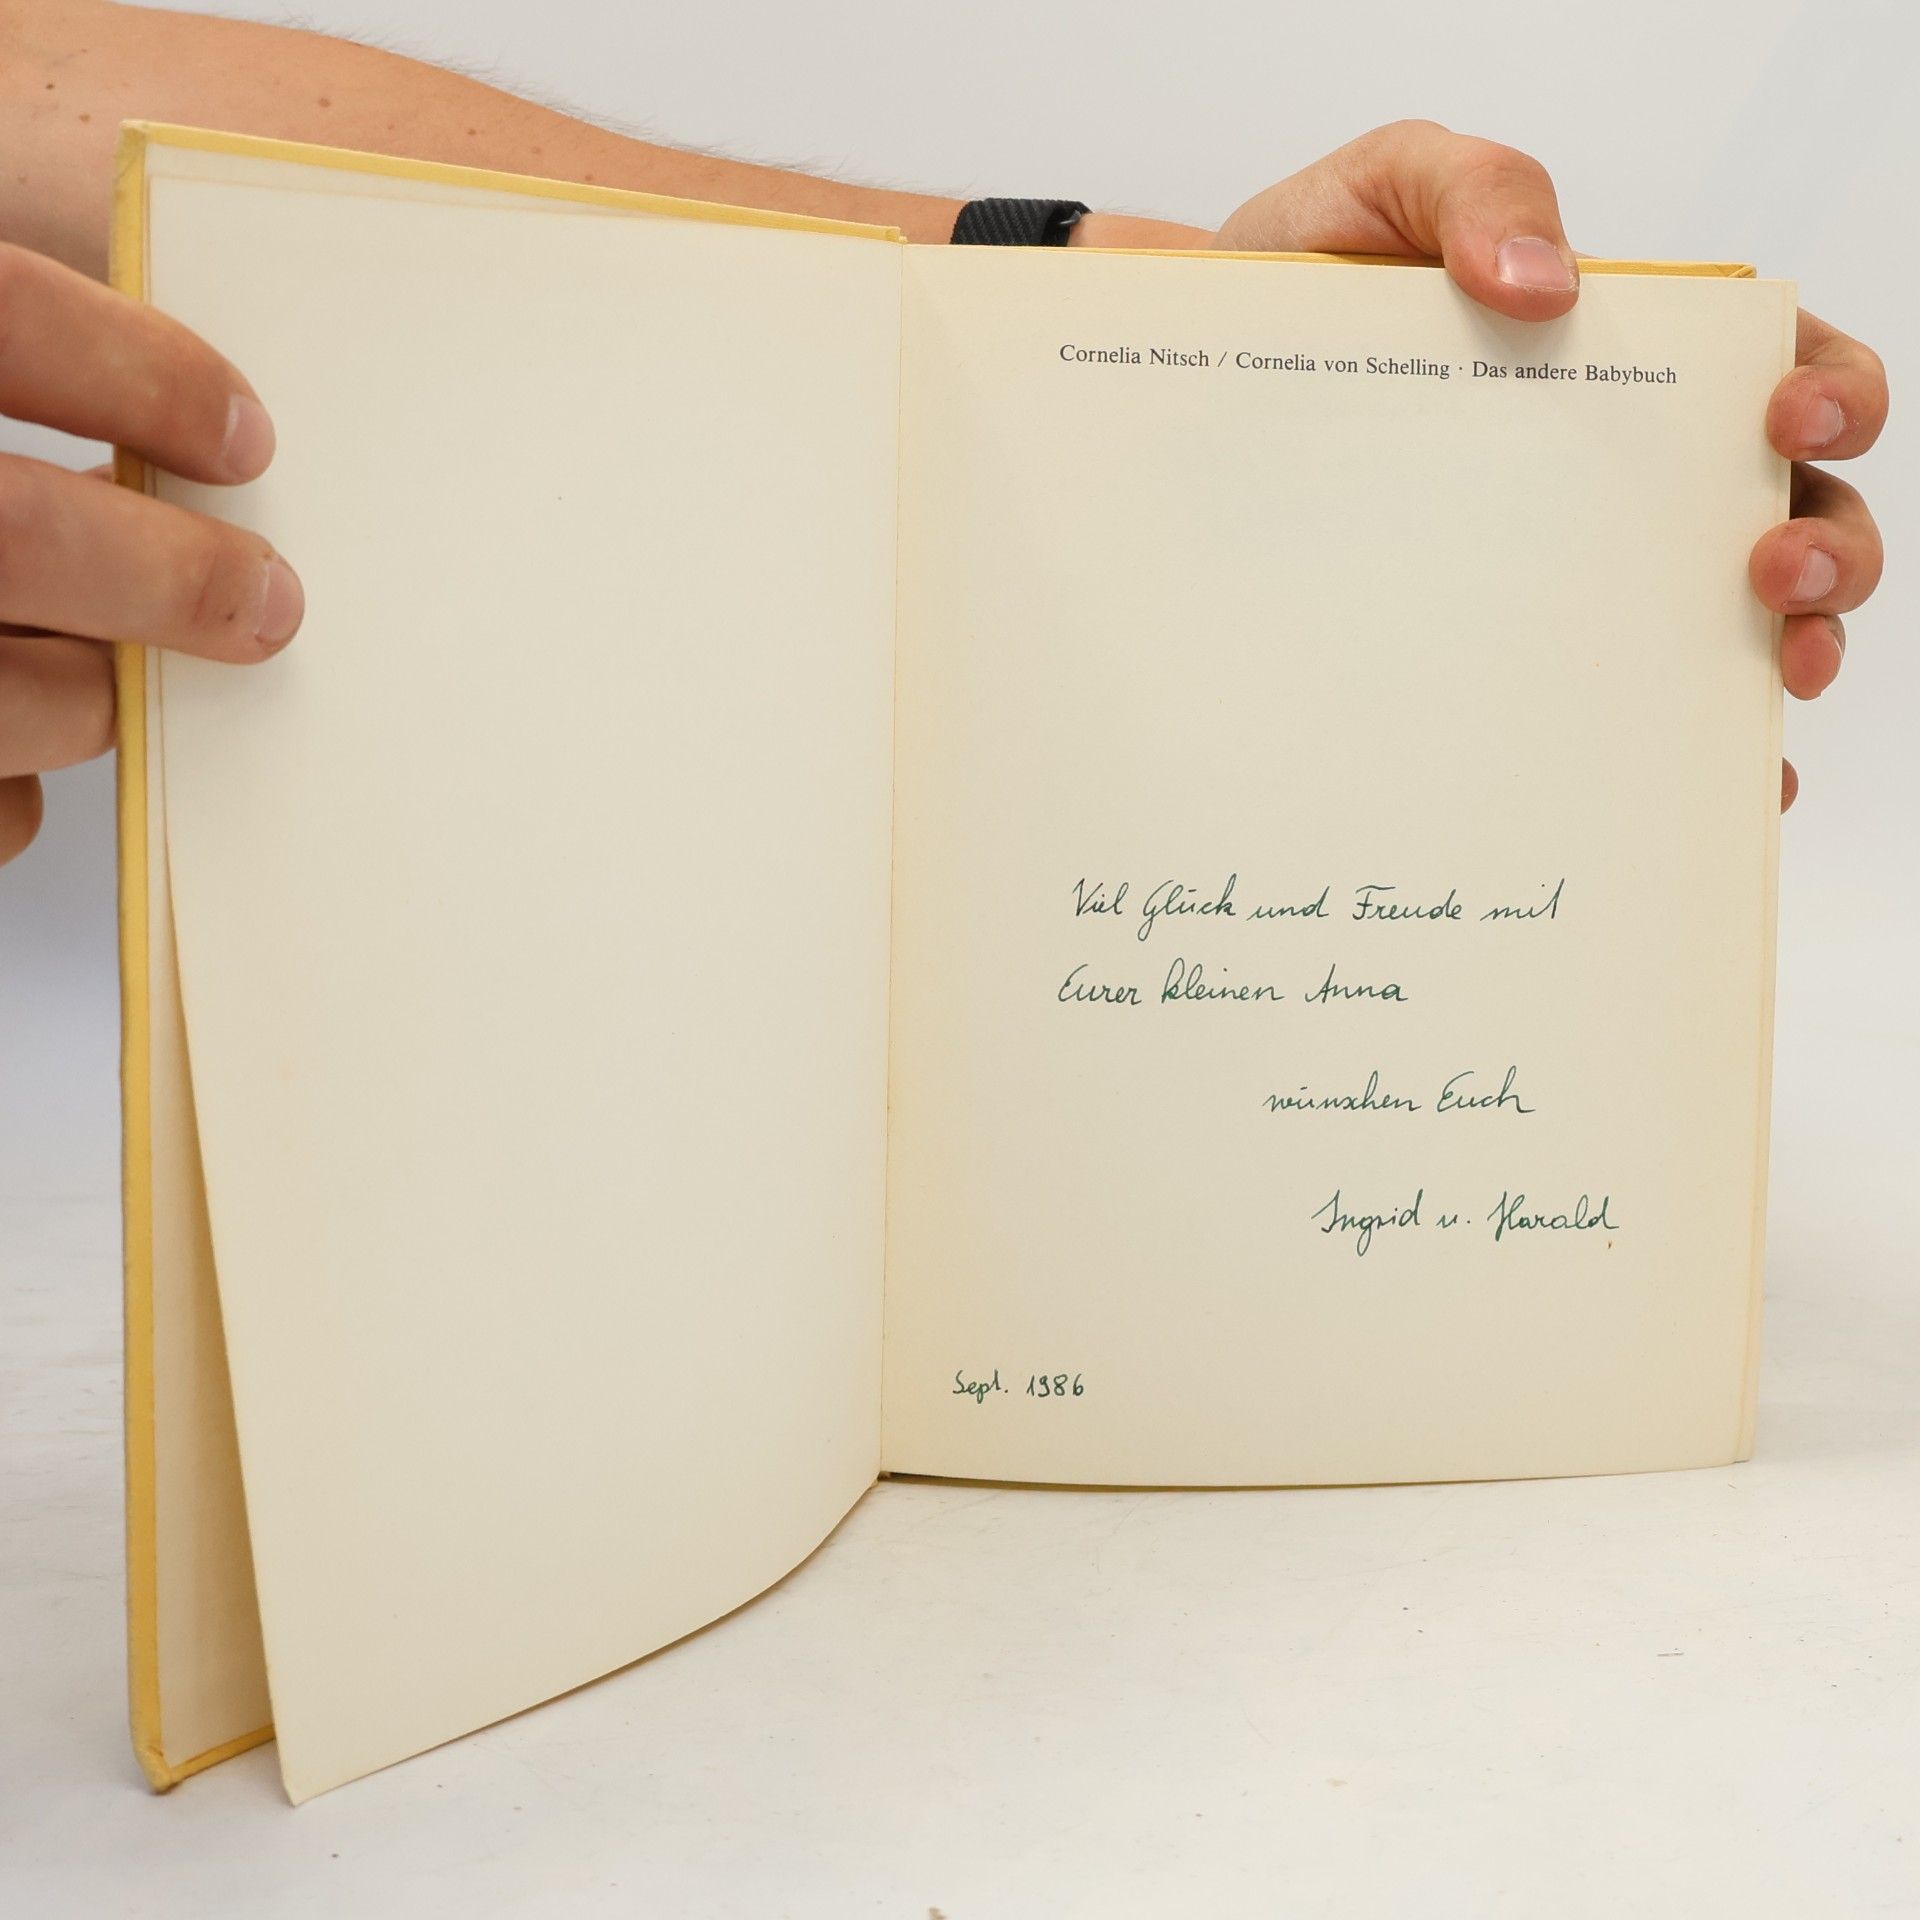 Cornelia Nitsch / Cornelia von Schelling · Das andere Babybuch
Viel Glück und Freude mit
Eurer kleinen Anna
wünschen Euch
Ingrid u. Harald
Sept. 1986